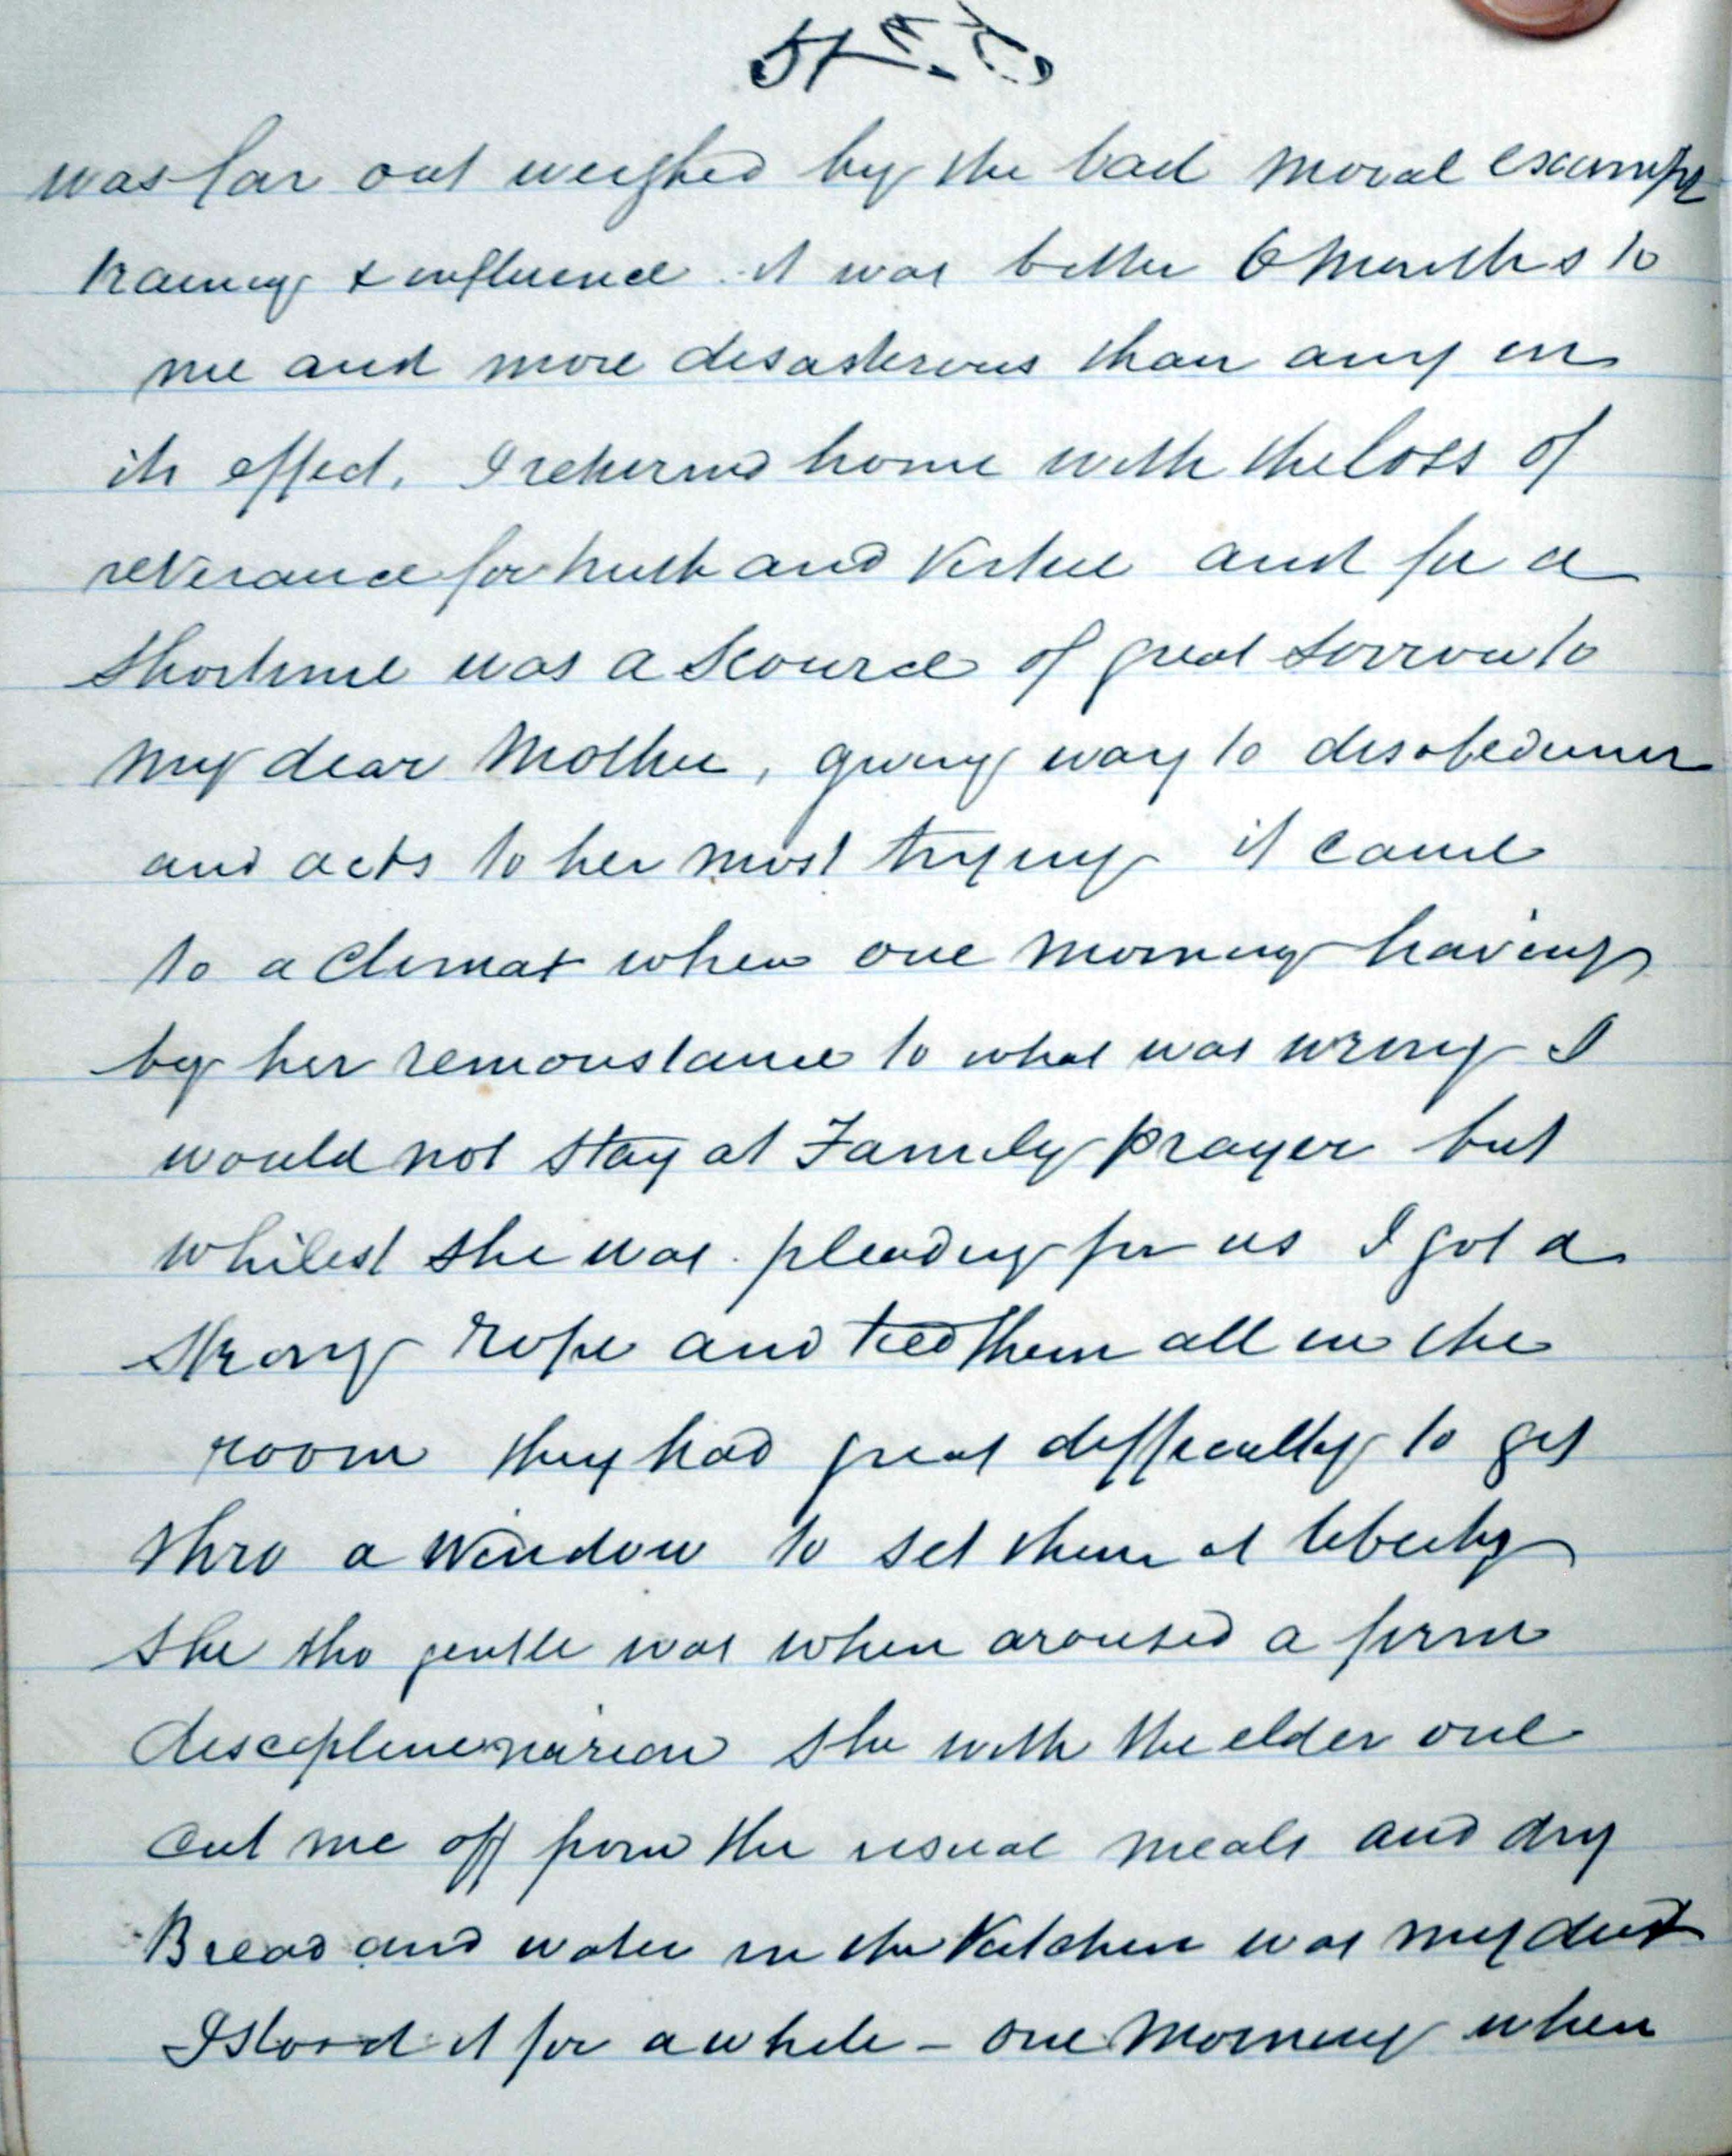 was far out weighed by the bad moral example
training & influence. it was bitter 6 months to
me and more desasterous than any in
its effect. I returned home with the loss of
reverance for truth and Virtue and for a
short time was a Scource of great sorrow to
my dear Mother, giving way to disobedience
and acts to her most trying it came
to a Climax when one morning having
by her remonstance to what was wrong I
would not stay at Family prayer but
whilest she was pleading for us I got a
strong rope and tied them all in the
room they had great difficulty to get
thro a Window to set them at liberty
she tho gentle was when aroused a firm
discipline narian she with the elder one
cut me off from the usual meals and dry
Bread and water in the Kitchen was my diet
I stood it for a while - one Morning when